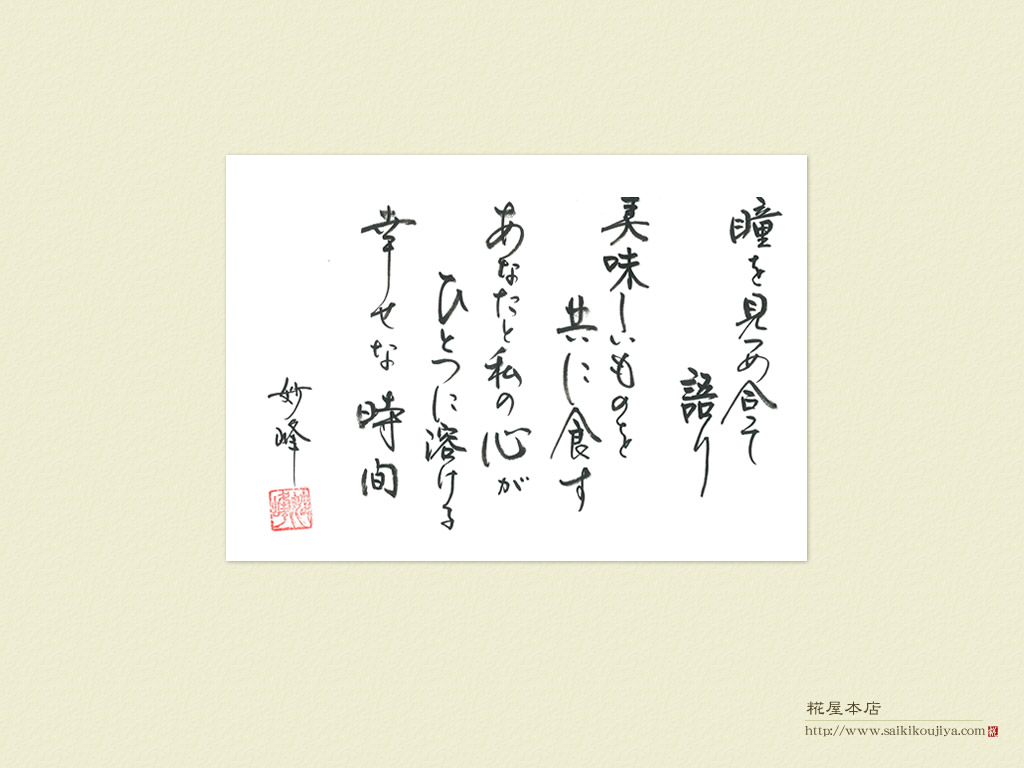 瞳を見つめ合って
語り
美味しいものを
共に食す
あなたと私の心が
ひとつに溶ける
幸せな時間
妙峰
糀屋本店
http://www.saikikoujiya.com